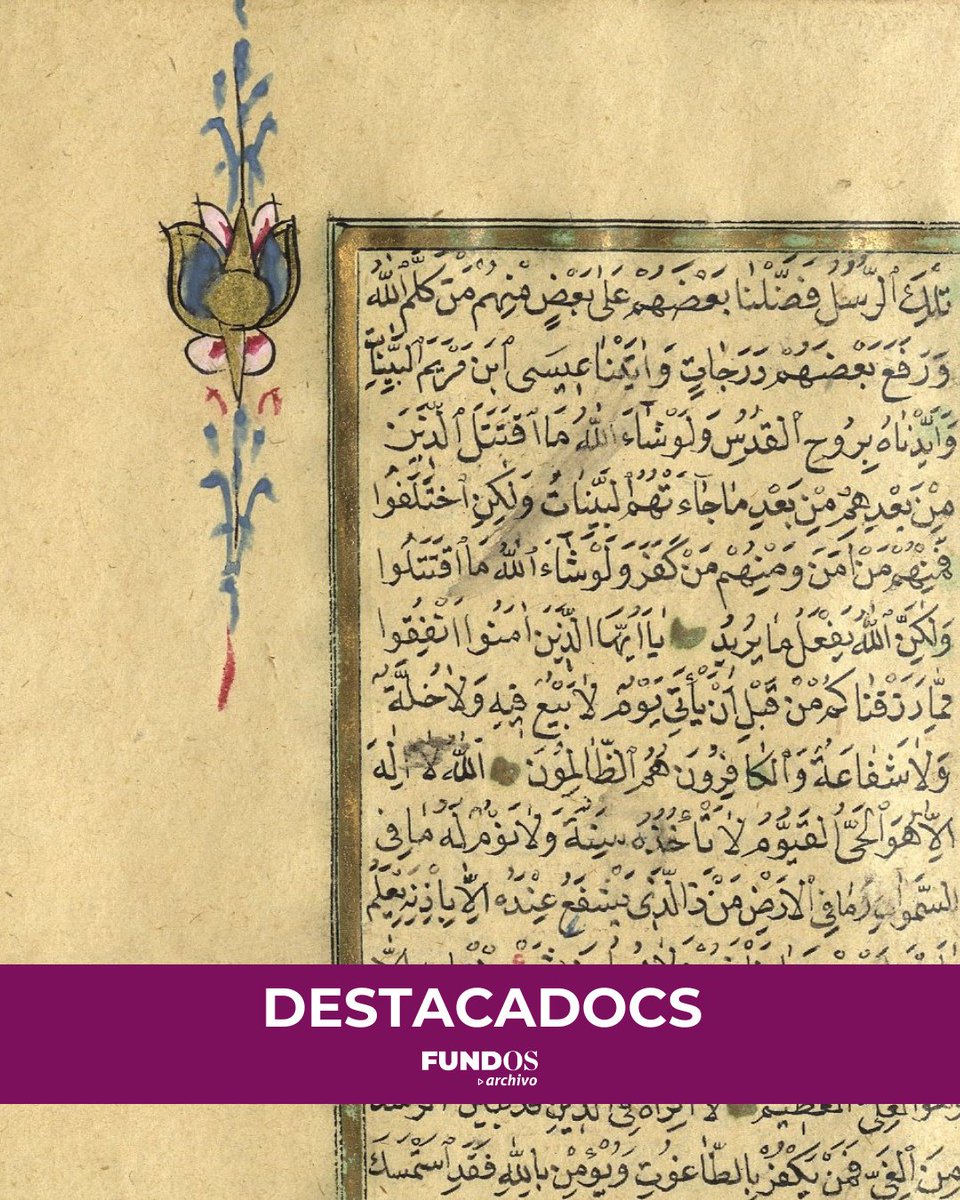 تِلْكَ ٱلرُّسُلُ فَضَّلْنَا بَعْضَهُمْ عَلٰى بَعْضٍ مِنْهُمْ مَنْ كَلَّمَ ٱللّٰهُ
وَرَفَعَ بَعْضَهُمْ دَرَجَاتٍ وَاٰتَيْنَا عِيسَى ٱبْنَ مَرْيَمَ ٱلْبَيِّنَاتِ
وَاَيَّدْنَاهُ بِرُوحِ ٱلْقُدُسِ وَلَوْ شَاءَ ٱللّٰهُ مَا ٱقْتَتَلَ ٱلَّذِينَ
مِنْ بَعْدِهِمْ مِنْ بَعْدِ مَا جَاءَتْهُمُ ٱلْبَيِّنَاتُ وَلٰكِنِ ٱخْتَلَفُوا
فَمِنْهُمْ مَنْ اٰمَنَ وَمِنْهُمْ مَنْ كَفَرَ وَلَوْ شَاءَ ٱللّٰهُ مَا ٱقْتَتَلُوا
وَلٰكِنَّ ٱللّٰهَ يَفْعَلُ مَا يُرِيدُ يَا اَيُّهَا ٱلَّذِينَ اٰمَنُوا اَنْفِقُوا
مِمَّا رَزَقْنَاكُمْ مِنْ قَبْلِ اَنْ يَأْتِيَ يَوْمٌ لَا بَيْعٌ فِيهِ وَلَا خُلَّةٌ
وَلَا شَفَاعَةٌ وَٱلْكَافِرُونَ هُمُ ٱلظَّالِمُونَ ٱللّٰهُ لَا اِلٰهَ
اِلَّا هُوَ ٱلْحَيُّ ٱلْقَيُّومُ لَا تَأْخُذُهُ سِنَةٌ وَلَا نَوْمٌ لَهُ مَا فِي
ٱلسَّمٰوَاتِ وَمَا فِي ٱلْاَرْضِ مَنْ ذَا ٱلَّذِي يَشْفَعُ عِنْدَهُ اِلَّا بِاِذْنِهِ يَعْلَمُ
DESTACADOCS
FUNDOS
archivo
مِنَ ٱلْغَيِّ فَمَنْ يَكْفُرْ بِالطَّاغُوتِ وَيُؤْمِنْ بِاللّٰهِ فَقَدِ ٱسْتَمْسَكَ